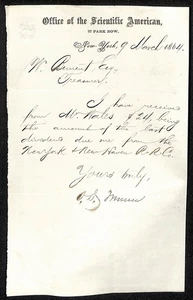 Office of the Scientific American,
37 PARK ROW,
New-York, 9 March 1864
W. Bement Esq,
Treasurer.
I have received
from Mr. Wales $24, being
the amount of the last
dividend due me from the
New York & New Haven R. R. Co.
Yours truly,
O. D. Munn